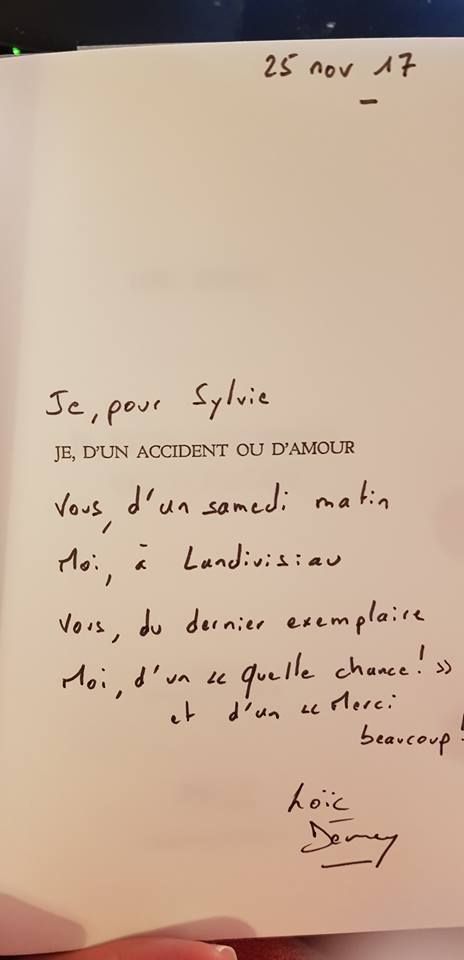 25 nov 17
Je, pour Sylvie
JE, D'UN ACCIDENT OU D'AMOUR
Vous, d'un samedi matin
Moi, à Landivisiau
Vous, du dernier exemplaire
Moi, d'un « quelle chance! »
et d'un « Merci
beaucoup!
Loïc
Demey